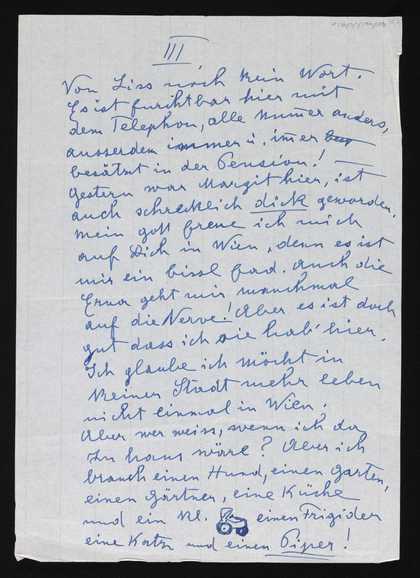 III
Von Liss noch kein Wort.
Es ist furchtbar hier mit
dem Telephon, alle Nummer anders,
ausserdem immer u. immer
besätzt in der Pension!
Gestern war Margit hier, ist
auch schrecklich dick geworden.
Mein Gott freue ich mich
auf Dich in Wien, denn es ist
mir ein bissl fad. Auch die
Erna geht mir manchmal
auf die Nerve! Aber es ist doch
gut dass ich sie hab' hier.
Ich glaube ich möcht in
keiner Stadt mehr leben
nicht einmal in Wien.
Aber wer weiss, wenn ich da
zu haus wäre? Aber ich
brauch einen Hund, einen Garten,
einen Gärtner, eine Küche
und ein kl. einen Frigider
eine Katze und einen Piper!